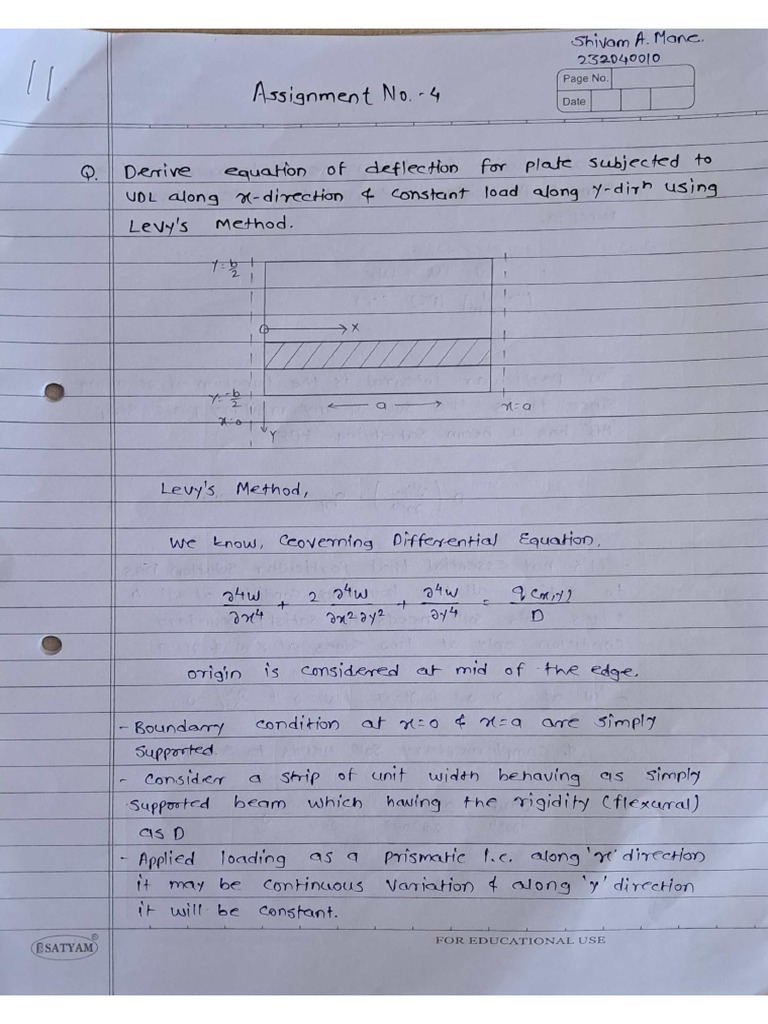 Shivam A. Mane.
232040010
Page No.
Date
11
Assignment No. - 4
Q. Derrive equation of deflection for plate subjected to
UDL along x-direction & constant load along y-dirn using
Levy's Method.
Y = b/2
x
Y = -b/2
x = 0
a
x = a
Y
Levy's Method,
We know, Governing Differential Equation,
∂⁴w/∂x⁴ + 2 ∂⁴w/∂x²∂y² + ∂⁴w/∂y⁴ = q(x,y)/D
origin is considered at mid of the edge.
- Boundary condition at x=0 & x=a are simply
supported.
- Consider a strip of unit width behaving as simply
supported beam which having the rigidity (flexural)
as D
- Applied loading as a prismatic i.e. along 'x' direction
it may be continuous variation & along 'y' direction
it will be constant.
SATYAM®
FOR EDUCATIONAL USE